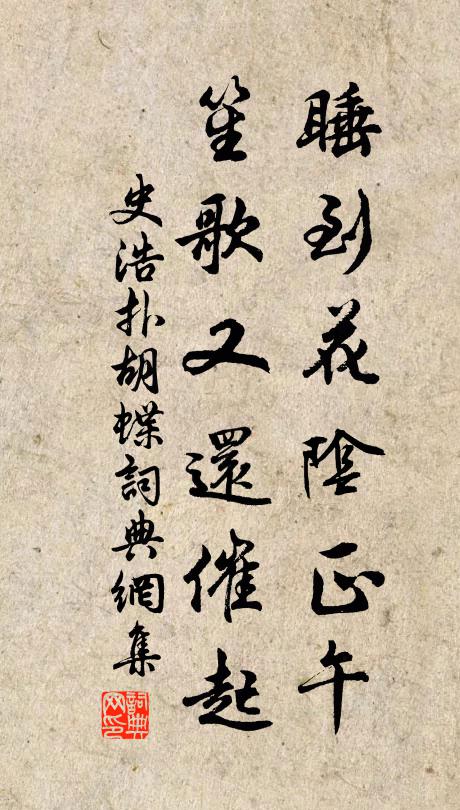 睡到花陰正午
笙歌又還催起
史浩扑胡蝶詞典網集
詞典网印